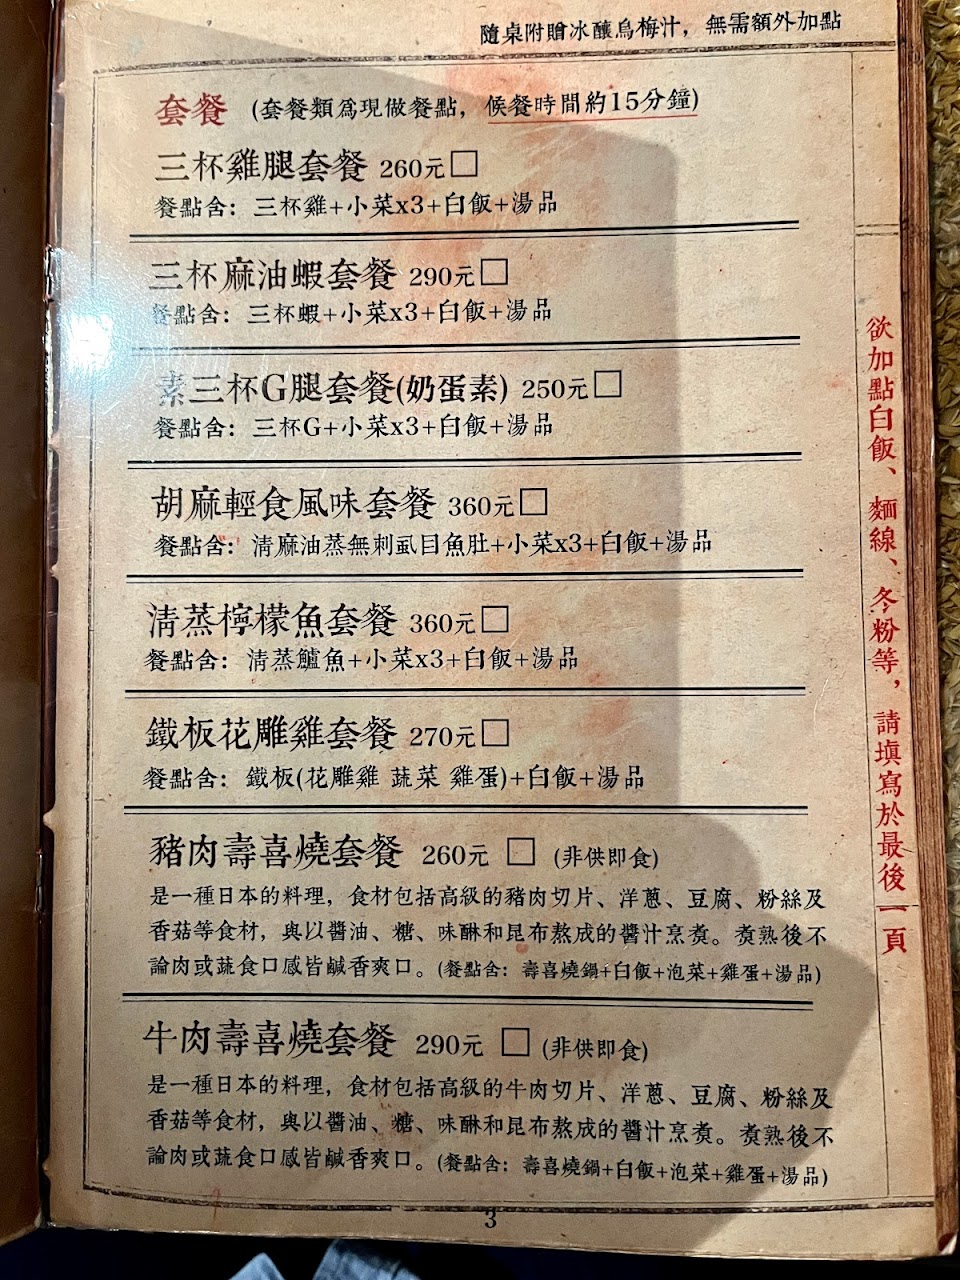 隨桌附贈冰釀烏梅汁，無需額外加點
套餐 (套餐類為現做餐點，候餐時間約15分鐘)
三杯雞腿套餐 260元□
餐點含：三杯雞+小菜x3+白飯+湯品
三杯麻油蝦套餐 290元□
餐點含：三杯蝦+小菜x3+白飯+湯品
素三杯G腿套餐(奶蛋素) 250元□
餐點含：三杯G+小菜x3+白飯+湯品
胡麻輕食風味套餐 360元□
餐點含：清麻油蒸無刺虱目魚肚+小菜x3+白飯+湯品
清蒸檸檬魚套餐 360元□
餐點含：清蒸鱸魚+小菜x3+白飯+湯品
鐵板花雕雞套餐 270元□
餐點含：鐵板(花雕雞 蔬菜 雞蛋)+白飯+湯品
豬肉壽喜燒套餐 260元 □ (非供即食)
是一種日本的料理，食材包括高級的豬肉切片、洋蔥、豆腐、粉絲及
香菇等食材，與以醬油、糖、味醂和昆布熬成的醬汁烹煮。煮熟後不
論肉或蔬食口感皆鹹香爽口。(餐點含：壽喜燒鍋+白飯+泡菜+雞蛋+湯品)
牛肉壽喜燒套餐 290元 □ (非供即食)
是一種日本的料理，食材包括高級的牛肉切片、洋蔥、豆腐、粉絲及
香菇等食材，與以醬油、糖、味醂和昆布熬成的醬汁烹煮。煮熟後不
論肉或蔬食口感皆鹹香爽口。(餐點含：壽喜燒鍋+白飯+泡菜+雞蛋+湯品)
欲加點白飯、麵線、冬粉等，請填寫於最後一頁
3